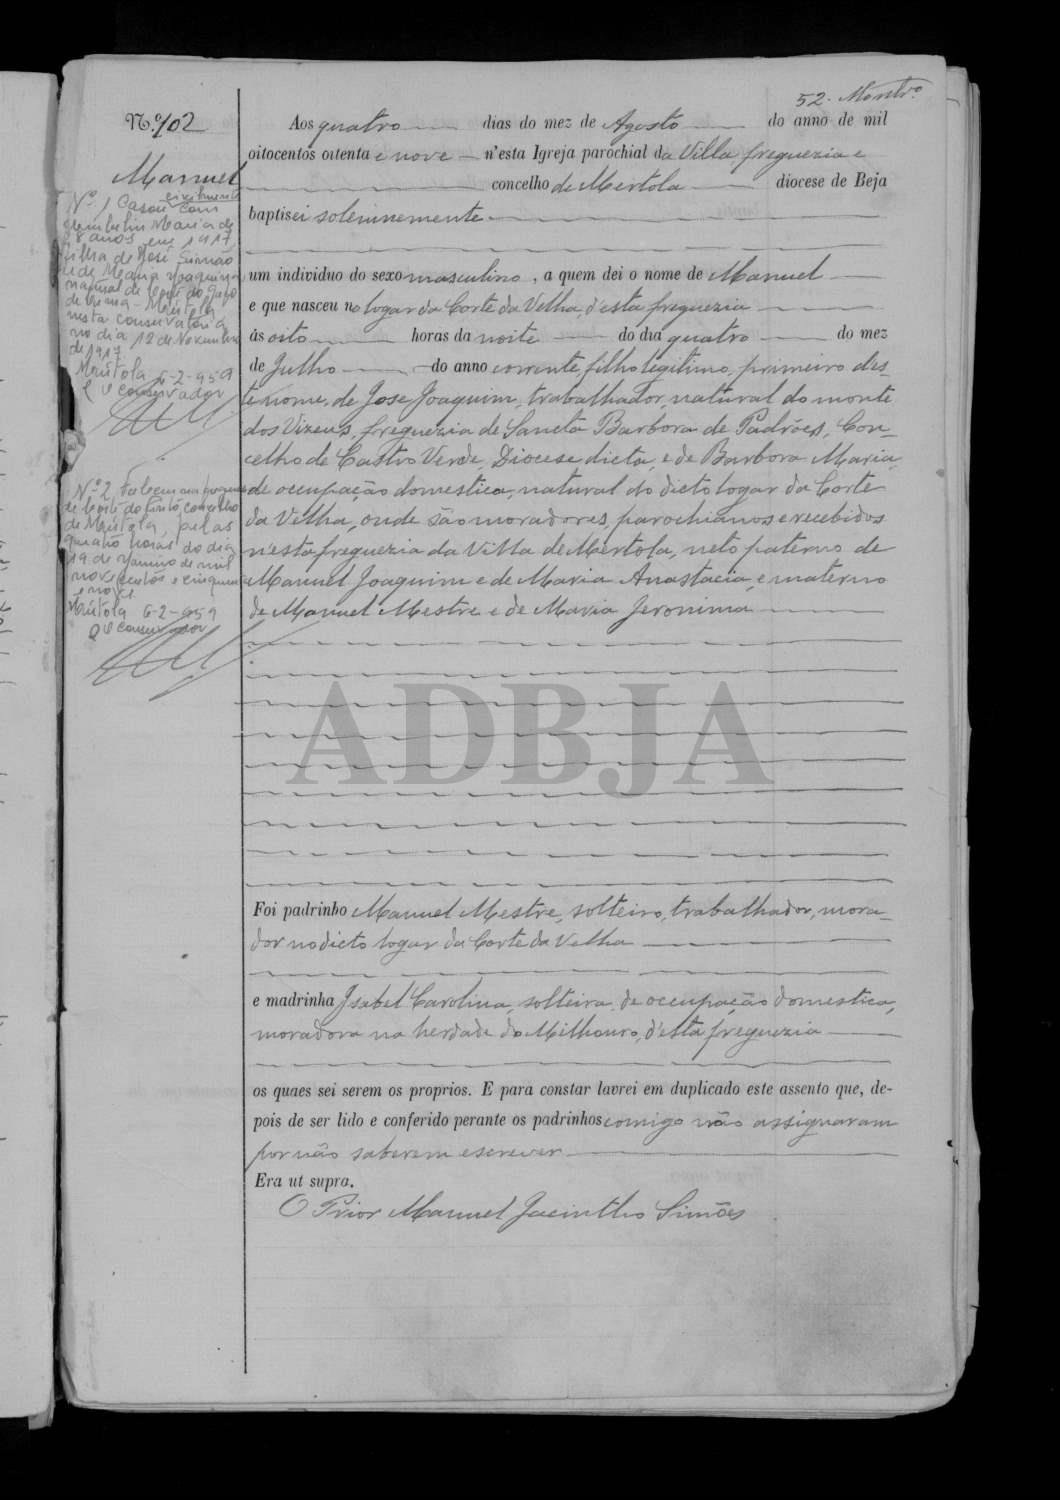 52. Montrº
N.º 102
Manuel
Aos quatro dias do mez de Agosto do anno de mil
oitocentos oitenta e nove n'esta Igreja parochial da Villa, freguezia e
concelho de Mertola diocese de Beja
baptisei solemnemente
um individuo do sexo masculino, a quem dei o nome de Manuel
e que nasceu no logar da Corte da Velha, d'esta freguezia
ás oito horas da noite do dia quatro do mez
de Julho do anno corrente, filho legitimo, primeiro des-
te nome, de Jose Joaquim, trabalhador, natural do monte
dos Vizeus, freguezia de Sancta Barbora de Padrões, Con-
celho de Castro Verde, Diocese dicta, e de Barbora Maria,
de occupação domestica, natural do dicto logar da Corte
da Velha, onde são moradores, parochianos e recebidos
n'esta freguezia da Villa de Mertola, neto paterno de
Manuel Joaquim e de Maria Anastacia, e materno
de Manuel Mestre e de Maria Jeronima
Foi padrinho Manuel Mestre, solteiro, trabalhador, mora-
dor no dicto logar da Corte da Velha
e madrinha Isabel Carolina, solteira, de occupação domestica,
moradora na herdade do Milhouro, d'esta freguezia
os quaes sei serem os proprios. E para constar lavrei em duplicado este assento que, de-
pois de ser lido e conferido perante os padrinhos comigo não assignaram
por não saberem escrever
Era ut supra.
O Prior Manuel Jacintho Simões
Nº 1 Casou civilmente com
Maria de
28 anos em 1917,
filha de José Simão
e de Maria Joaquina
natural de Corte do Gafo
de Cima - Mértola
nesta conservatória
no dia 12 de Novembro
de 1917
Mértola 6-2-959
O Conservador
Nº 2 Faleceu na freguesia
de Corte do Pinto, concelho
de Mértola, pelas
quatro horas do dia
19 de Janeiro de mil
novecentos e cinquenta
e nove
Mértola 6-2-959
O Conservador
ADBJA